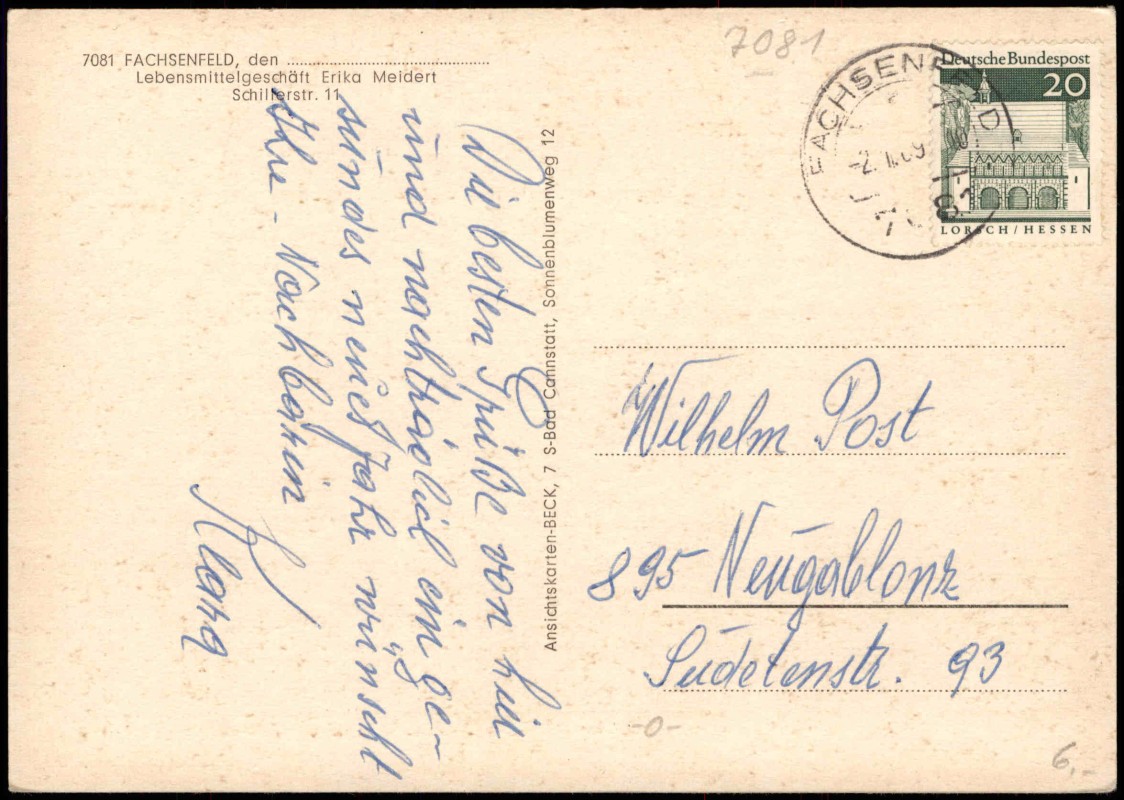 7081 FACHSENFELD, den
Lebensmittelgeschäft Erika Meidert
Schillerstr. 11
Die besten Grüße von hier
und nachträglich ein ge-
sundes neues Jahr wünscht
Ihre - Nachbarin
Klang
Ansichtskarten-BECK, 7 S-Bad Cannstatt, Sonnenblumenweg 12
7081
FACHSENFELD
Deutsche Bundespost
20
LORSCH/HESSEN
Wilhelm Post
895 Neugablonz
Sudetenstr. 93
-0-
6,-